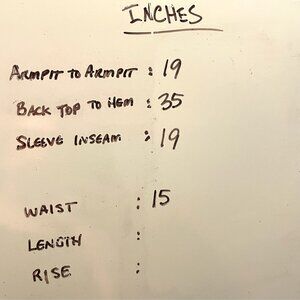 INCHES
ARMPIT TO ARMPIT : 19
BACK TOP TO HEM : 35
SLEEVE INSEAM : 19
WAIST : 15
LENGTH :
RISE :